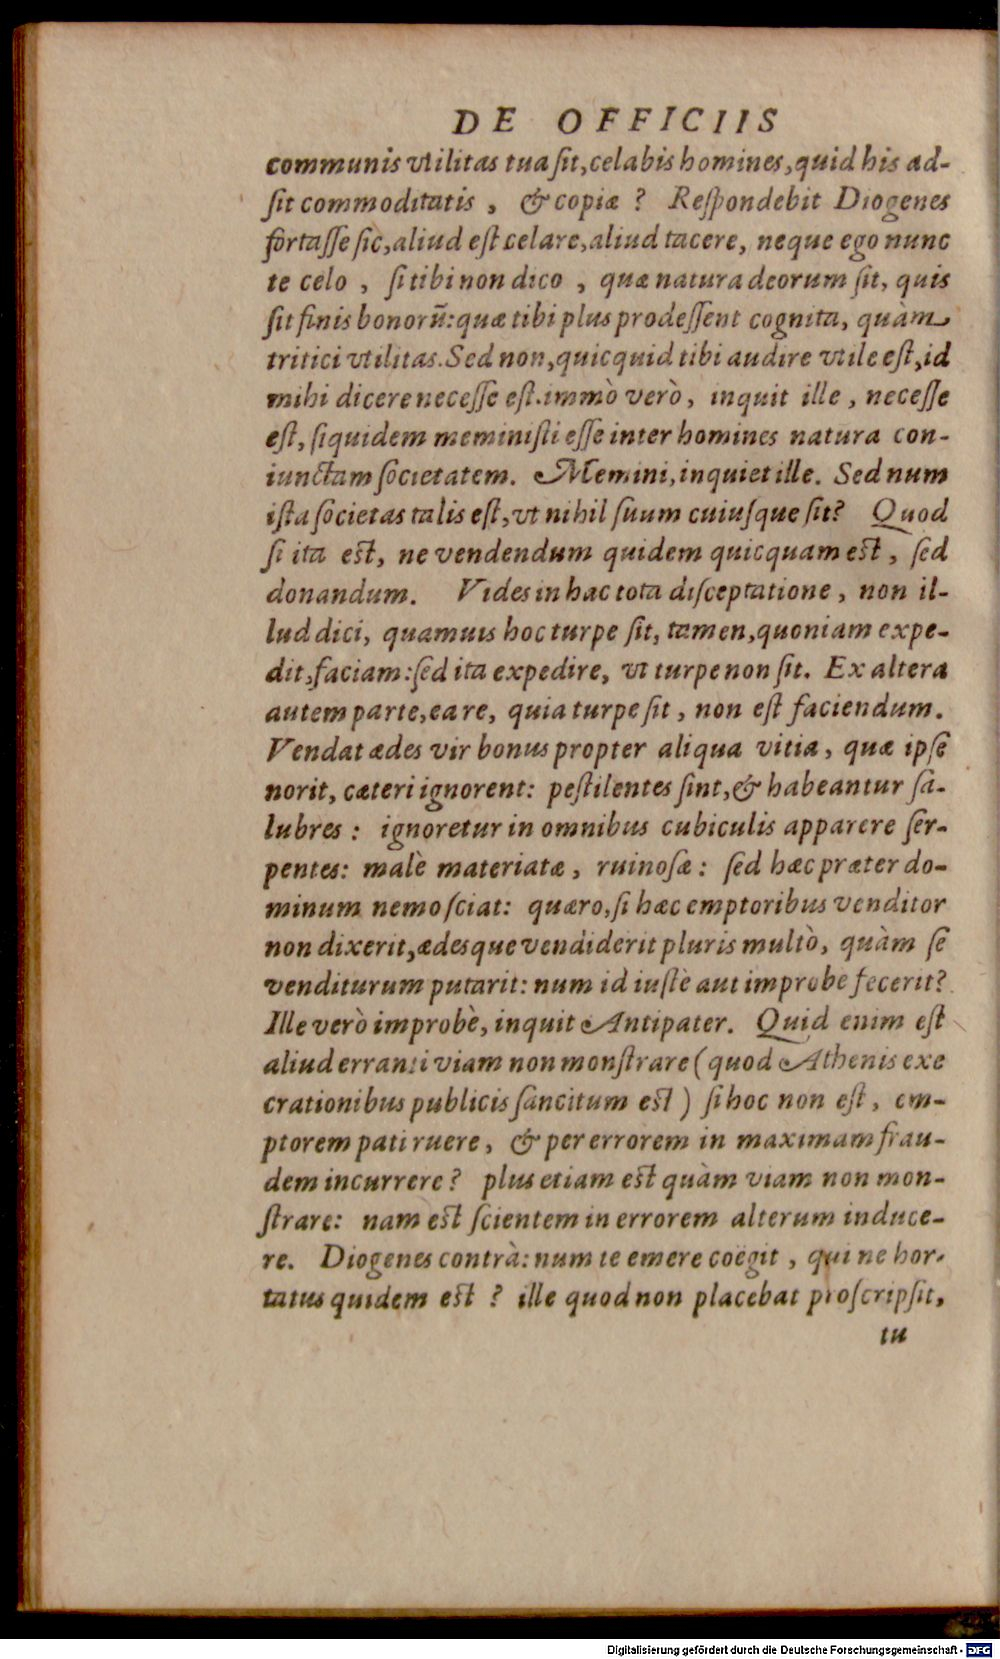 DE OFFICIIS
communis vtilitas tua ſit, celabis homines, quid his ad-
ſit commoditatis, & copiæ? Reſpondebit Diogenes
fortaſſe ſic, aliud eſt celare, aliud tacere, neque ego nunc
te celo, ſi tibi non dico, quæ natura deorum ſit, quis
ſit finis bonorũ: quæ tibi plus prodeſſent cognita, quàm
tritici vtilitas. Sed non, quicquid tibi audire vtile eſt, id
mihi dicere neceſſe eſt. immò verò, inquit ille, neceſſe
eſt, ſiquidem meminiſti eſſe inter homines natura con-
iunctam ſocietatem. Memini, inquiet ille. Sed num
iſta ſocietas talis eſt, vt nihil ſuum cuiuſque ſit? Quod
ſi ita eſt, ne vendendum quidem quicquam eſt, ſed
donandum. Vides in hac tota diſceptatione, non il-
lud dici, quamuis hoc turpe ſit, tamen, quoniam expe-
dit, faciam: ſed ita expedire, vt turpe non ſit. Ex altera
autem parte, ea re, quia turpe ſit, non eſt faciendum.
Vendat ædes vir bonus propter aliqua vitia, quæ ipſe
norit, cæteri ignorent: peſtilentes ſint, & habeantur ſa-
lubres: ignoretur in omnibus cubiculis apparere ſer-
pentes: malè materiatæ, ruinoſæ: ſed hæc præter do-
minum nemo ſciat: quæro, ſi hæc emptoribus venditor
non dixerit, ædesque vendiderit pluris multò, quàm ſe
venditurum putarit: num id iuſtè aut improbe fecerit?
Ille verò improbè, inquit Antipater. Quid enim eſt
aliud erranti viam non monſtrare (quod Athenis exe
crationibus publicis ſancitum eſt) ſi hoc non eſt, em-
ptorem pati ruere, & per errorem in maximam frau-
dem incurrere? plus etiam eſt quàm viam non mon-
ſtrare: nam eſt ſcientem in errorem alterum induce-
re. Diogenes contrà: num te emere coëgit, qui ne hor-
tatus quidem eſt? ille quod non placebat proſcripſit,
tu
Digitalisierung gefördert durch die Deutsche Forschungsgemeinschaft - DFG